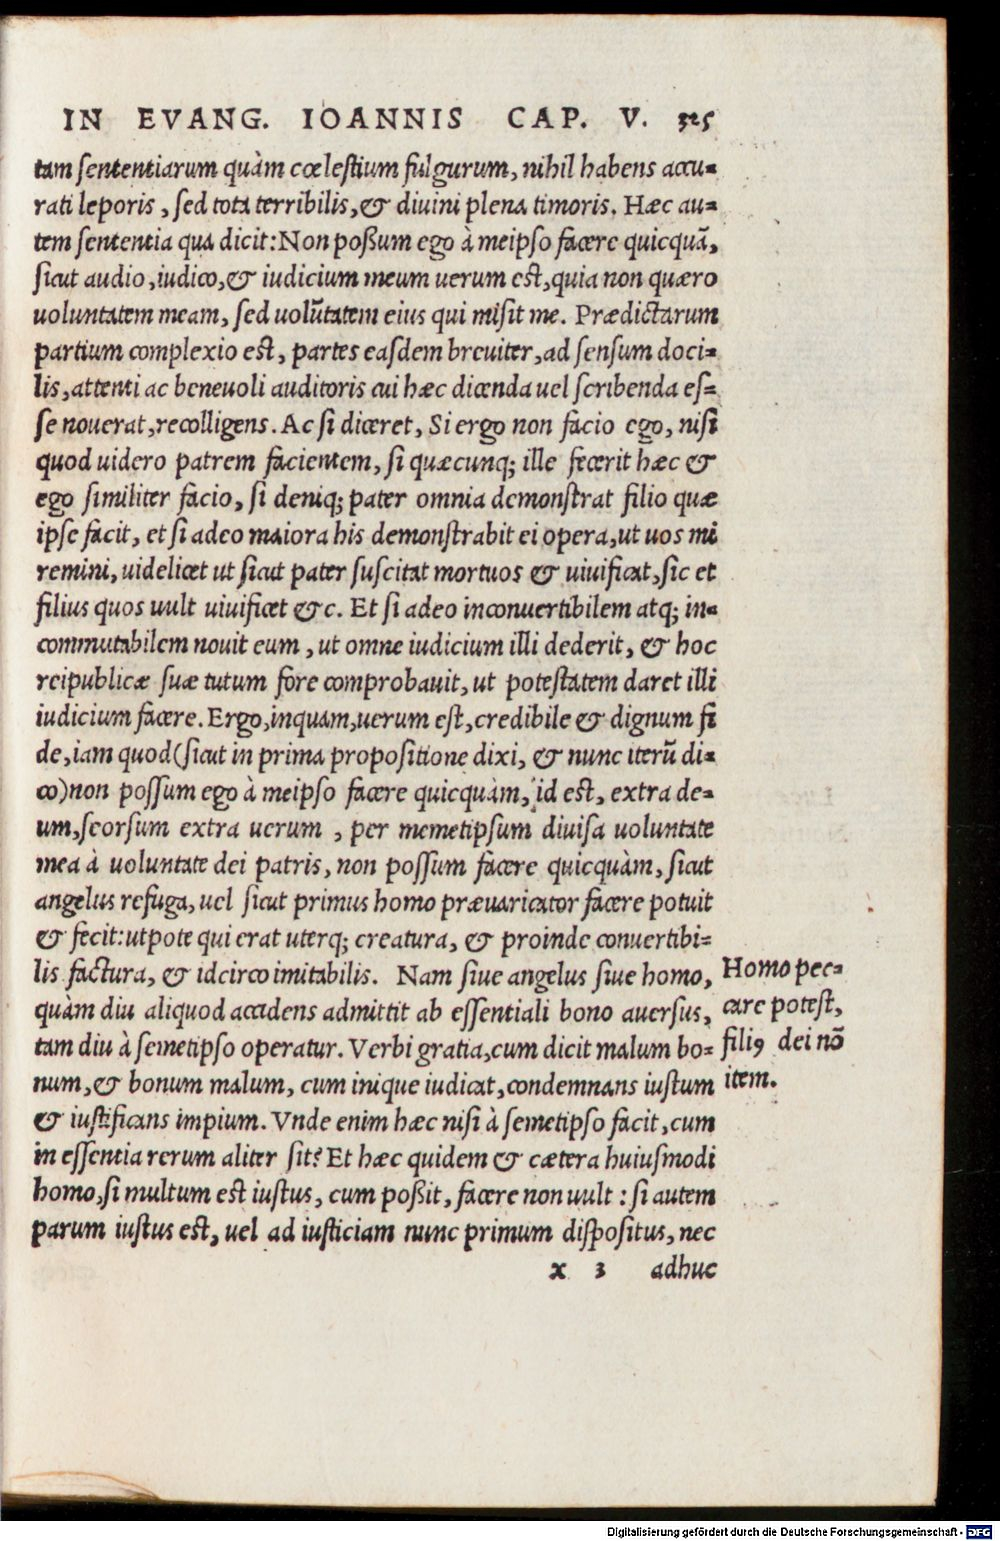 IN EVANG. IOANNIS CAP. V. 325
tam sententiarum quàm cœlestium fulgurum, nihil habens accu-
rati leporis, sed tota terribilis, & diuini plena timoris. Hæc au-
tem sententia qua dicit: Non poßum ego à meipso facere quicquā,
sicut audio, iudico, & iudicium meum uerum est, quia non quæro
uoluntatem meam, sed uolūtatem eius qui misit me. Prædictarum
partium complexio est, partes easdem breuiter, ad sensum doci-
lis, attenti ac beneuoli auditoris cui hæc dicenda uel scribenda es-
se nouerat, recolligens. Ac si diceret, Si ergo non facio ego, nisi
quod uidero patrem facientem, si quæcunq; ille fecerit hæc &
ego similiter facio, si deniq; pater omnia demonstrat filio quæ
ipse facit, et si adeo maiora his demonstrabit ei opera, ut uos mi
remini, uidelicet ut sicut pater suscitat mortuos & uiuificat, sic et
filius quos uult uiuificet &c. Et si adeo inconuertibilem atq; in-
commutabilem nouit eum, ut omne iudicium illi dederit, & hoc
reipublicæ suæ tutum fore comprobauit, ut potestatem daret illi
iudicium facere. Ergo, inquam, uerum est, credibile & dignum fi
de, iam quod (sicut in prima propositione dixi, & nunc iterū di-
co) non possum ego à meipso facere quicquàm, id est, extra de-
um, seorsum extra uerum, per memetipsum diuisa uoluntate
mea à uoluntate dei patris, non possum facere quicquàm, sicut
angelus refuga, uel sicut primus homo præuaricator facere potuit
& fecit: utpote qui erat uterq; creatura, & proinde conuertibi-
lis factura, & idcirco imitabilis. Nam siue angelus siue homo,
quàm diu aliquod accidens admittit ab essentiali bono auersus,
tam diu à semetipso operatur. Verbi gratia, cum dicit malum bo-
num, & bonum malum, cum inique iudicat, condemnans iustum
& iustificans impium. Vnde enim hæc nisi à semetipso facit, cum
in essentia rerum aliter sit? Et hæc quidem & cætera huiusmodi
homo, si multum est iustus, cum poßit, facere non uult: si autem
parum iustus est, uel ad iusticiam nunc primum dispositus, nec
x 3 adhuc
Homo pec-
care potest,
filiꝰ dei nō
item.
Digitalisierung gefördert durch die Deutsche Forschungsgemeinschaft - DFG